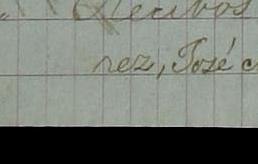 Recibos
rez, José